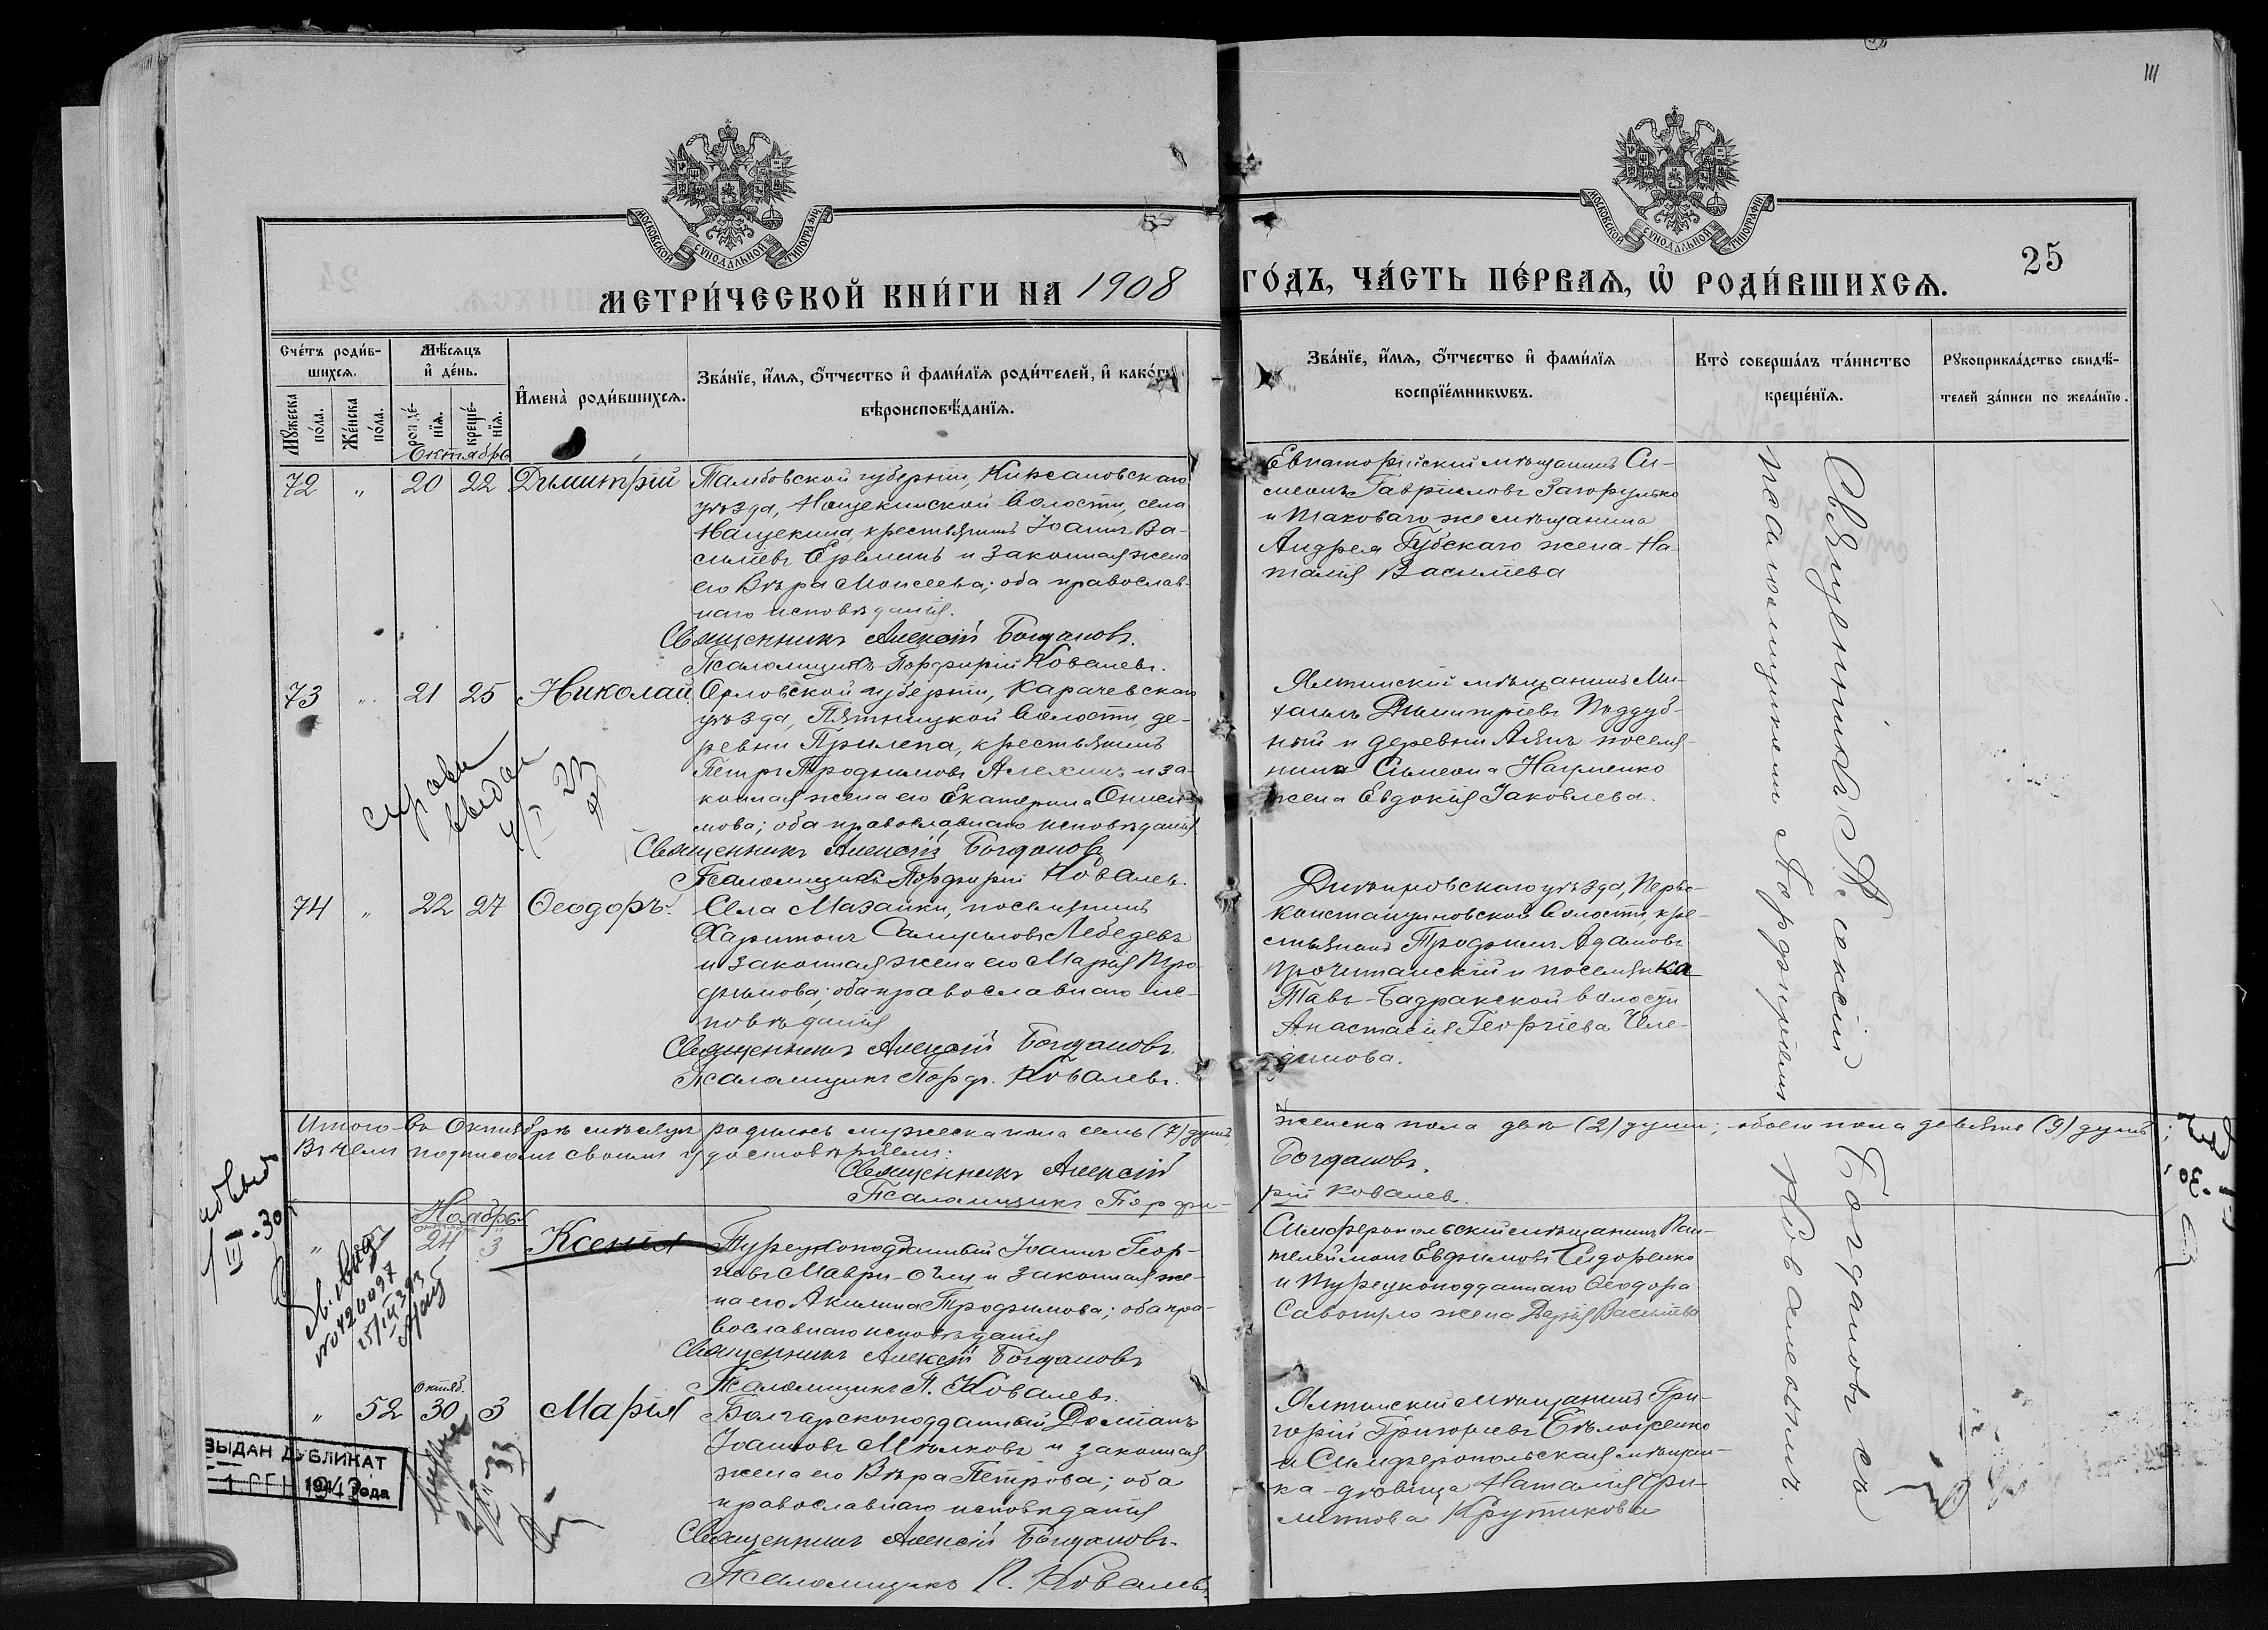 111
25
МОСКОВСКОЙ СѴНОДАЛЬНОЙ ТИПОГРАФІИ
МОСКОВСКОЙ СѴНОДАЛЬНОЙ ТИПОГРАФІИ
МЕТРИ́ЧЕСКОЙ КНИ́ГИ НА 1908 ГО́ДЪ, ЧА́СТЬ ПЕ́РВАѦ, Ѡ҆ РОДИ́ВШИХСѦ.
Сче́тъ роди́в-
шихсѧ.
Мꙋ́жеска по́ла.
Же́нска по́ла.
Мѣ́сѧцъ
и҆ де́нь.
рожде́-
нїѧ.
креще́-
нїѧ.
И҆мена̀ роди́вшихсѧ.
Зва́нїе, и҆́мѧ, ѻ҆́тчество и҆ фами́лїѧ роди́телей, и҆ како́гѡ
вѣроисповѣ́данїѧ.
Зва́нїе, и҆́мѧ, ѻ҆́тчество и҆ фами́лїѧ
воспрїе́мникѡвъ.
Кто̀ соверша́лъ та́инство
креще́нїѧ.
Рꙋкоприкла́дство свидѣ́-
телей за́писи по жела́нїю.
Октябрь
72 " 20 22 Димитрій
Тамбовской губерніи, Кирсановскаго
уѣзда, Нащекинской волости, села
Нащекина, крестьянинъ Іоаннъ Ва-
сильевъ Еремин и законная жена
его Вѣра Моисеева; оба православ-
наго исповѣданія.
Священникъ Алексій Богдановъ.
Псаломщикъ Порфирій Ковалевъ.
Евпаторійскій мѣщанинъ Си-
меонъ Гавриловъ Загорулько
и таковаго же мѣщанина
Андрея Губскаго жена На-
талія Васильева
73 " 21 25 Николай
Орловской губерніи, Карачевскаго
уѣзда, Пятницкой волости, де-
ревни Прилепа, крестьянинъ
Петръ Трофимовъ Алехинъ и за-
конная жена его Екатерина Ониси-
мова; оба православнаго исповѣданія
Священникъ Алексій Богдановъ
Псаломщикъ Порфирій Ковалев.
Ялтинскій мѣщанинъ Ми-
хаилъ Димитріевъ Поддуб-
ный и деревни Аянъ поселя-
нина Симеона Науменко
жена Евдокія Іаковлева.
74 " 22 27 Ѳеодоръ.
Села Мазанки, поселянинъ
Харитонъ Самуиловъ Лебедевъ
и законная жена его Марія Тро-
фимова; оба православнаго ис-
повѣданія
Священникъ Алексій Богдановъ.
Псаломщикъ Порф. Ковалевъ.
уѣзда,
константиновской волости, кре-
стьянинъ Трофимъ Адамовъ
и поселянка
Тавъ-Бадракской волости
Анастасія Георгіева
Священникъ Алексій Богдановъ съ
псаломщикомъ Порфиріемъ Ковалевымъ.
Итого въ Октябрѣ мѣсяцѣ родилось мужеска пола семь (7) душъ, женска пола двѣ (2) души; обоего пола девять (9) душъ;
Въ чемъ подписомъ своимъ удостовѣряемъ:
Священникъ Алексій Богдановъ.
Псаломщикъ Порфирій Ковалев.
Ноябрь
октября
" 24 3 Ксенія
Турецкоподданный Іоаннъ Геор-
гіевъ Маври-Оглу и законная же-
на его Акилина Трофимова; оба пра-
вославнаго исповѣданія
Священникъ Алексій Богдановъ
Псаломщикъ П. Ковалевъ.
Симферопольскій мѣщанинъ Пан-
телеймонъ Евфимовъ Сидоренко
и турецкоподданнаго Ѳеодора
жена Дарія Васильева
Октяб.
" 52 30 3 Марія
Болгарскоподданный
Іоанновъ и законная
жена его Вѣра Петрова; оба
православнаго исповѣданія
Священникъ Алексій Богдановъ.
Псаломщикъ П. Ковалевъ.
Ялтинскій мѣщанинъ Гри-
горій Григорьевъ
и Симферопольская мѣщан-
ка дѣвица Наталія
Крутикова
ВЫДАН ДУБЛИКАТ
1 СЕН 1943 года